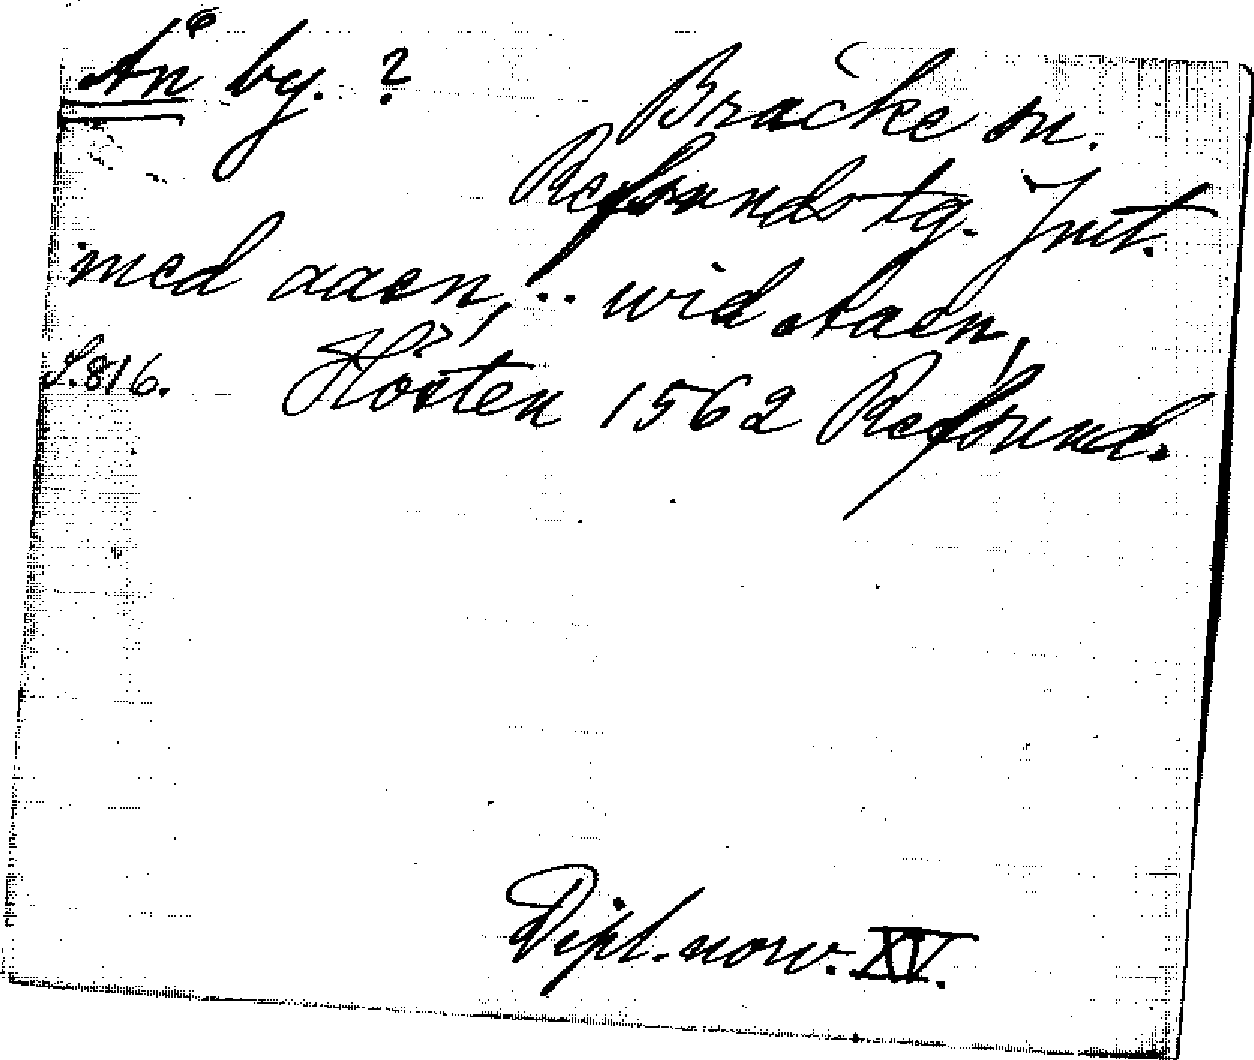 Ån by. ?
Bräcke sn.
Refsunds tg. Jmt.
med aaen, .. wid Aaen,
S. 816. Hösten 1562 Refsund.
Dipl. norv. XV.